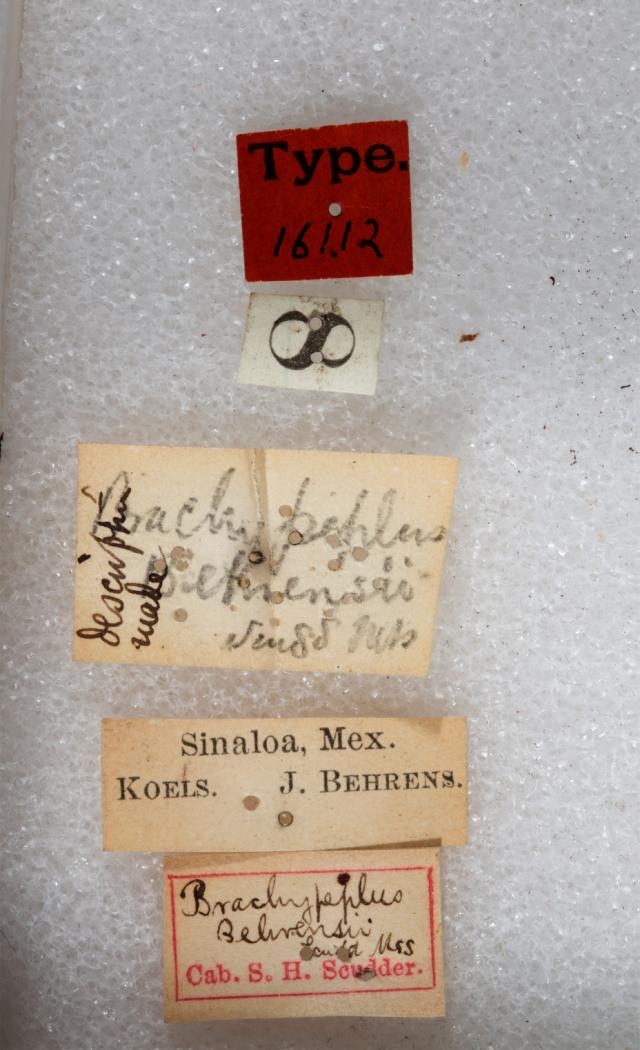 Type.
16112
8
Brachypeplus
Behrensii
Scudd Mss
descriptn
made
Sinaloa, Mex.
KOELS. J. BEHRENS.
Brachypeplus
Behrensii
Scudd Mss
Cab. S. H. Scudder.